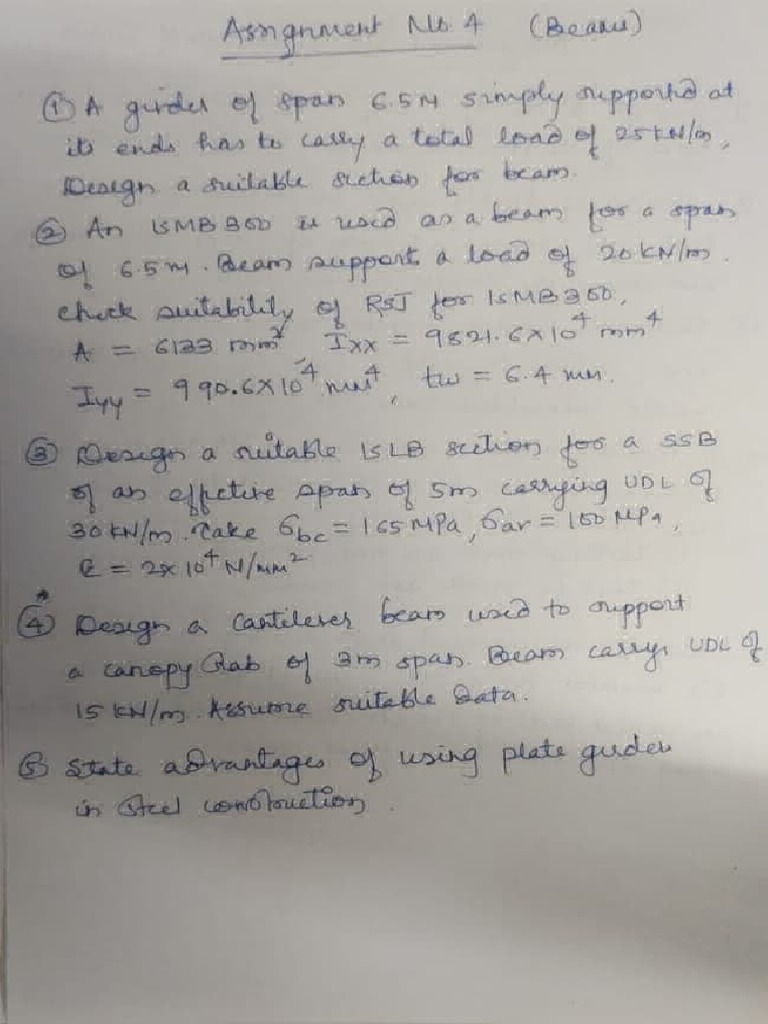 Assignment No. 4 (Beams)
① A girder of span 6.5M simply supported at
its ends has to carry a total load of 25 kN/m,
Design a suitable section for beam.
② An ISMB 350 is used as a beam for a span
of 6.5m. Beam support a load of 20 kN/m.
check suitability of RSJ for ISMB 350,
A = 6133 mm², Ixx = 9821.6×10⁴ mm⁴
Iyy = 990.6×10⁴ mm⁴, tw = 6.4 mm.
③ Design a suitable ISLB section for a SSB
of an effective span of 5m carrying UDL of
30 kN/m. Take σbc = 165 MPa, σav = 100 MPa,
E = 2×10⁴ N/mm²
④ Design a Cantilever beam used to support
a canopy slab of 3m span. Beam carrys UDL of
15 kN/m. Assume suitable data.
⑤ State advantages of using plate girder
in steel construction.